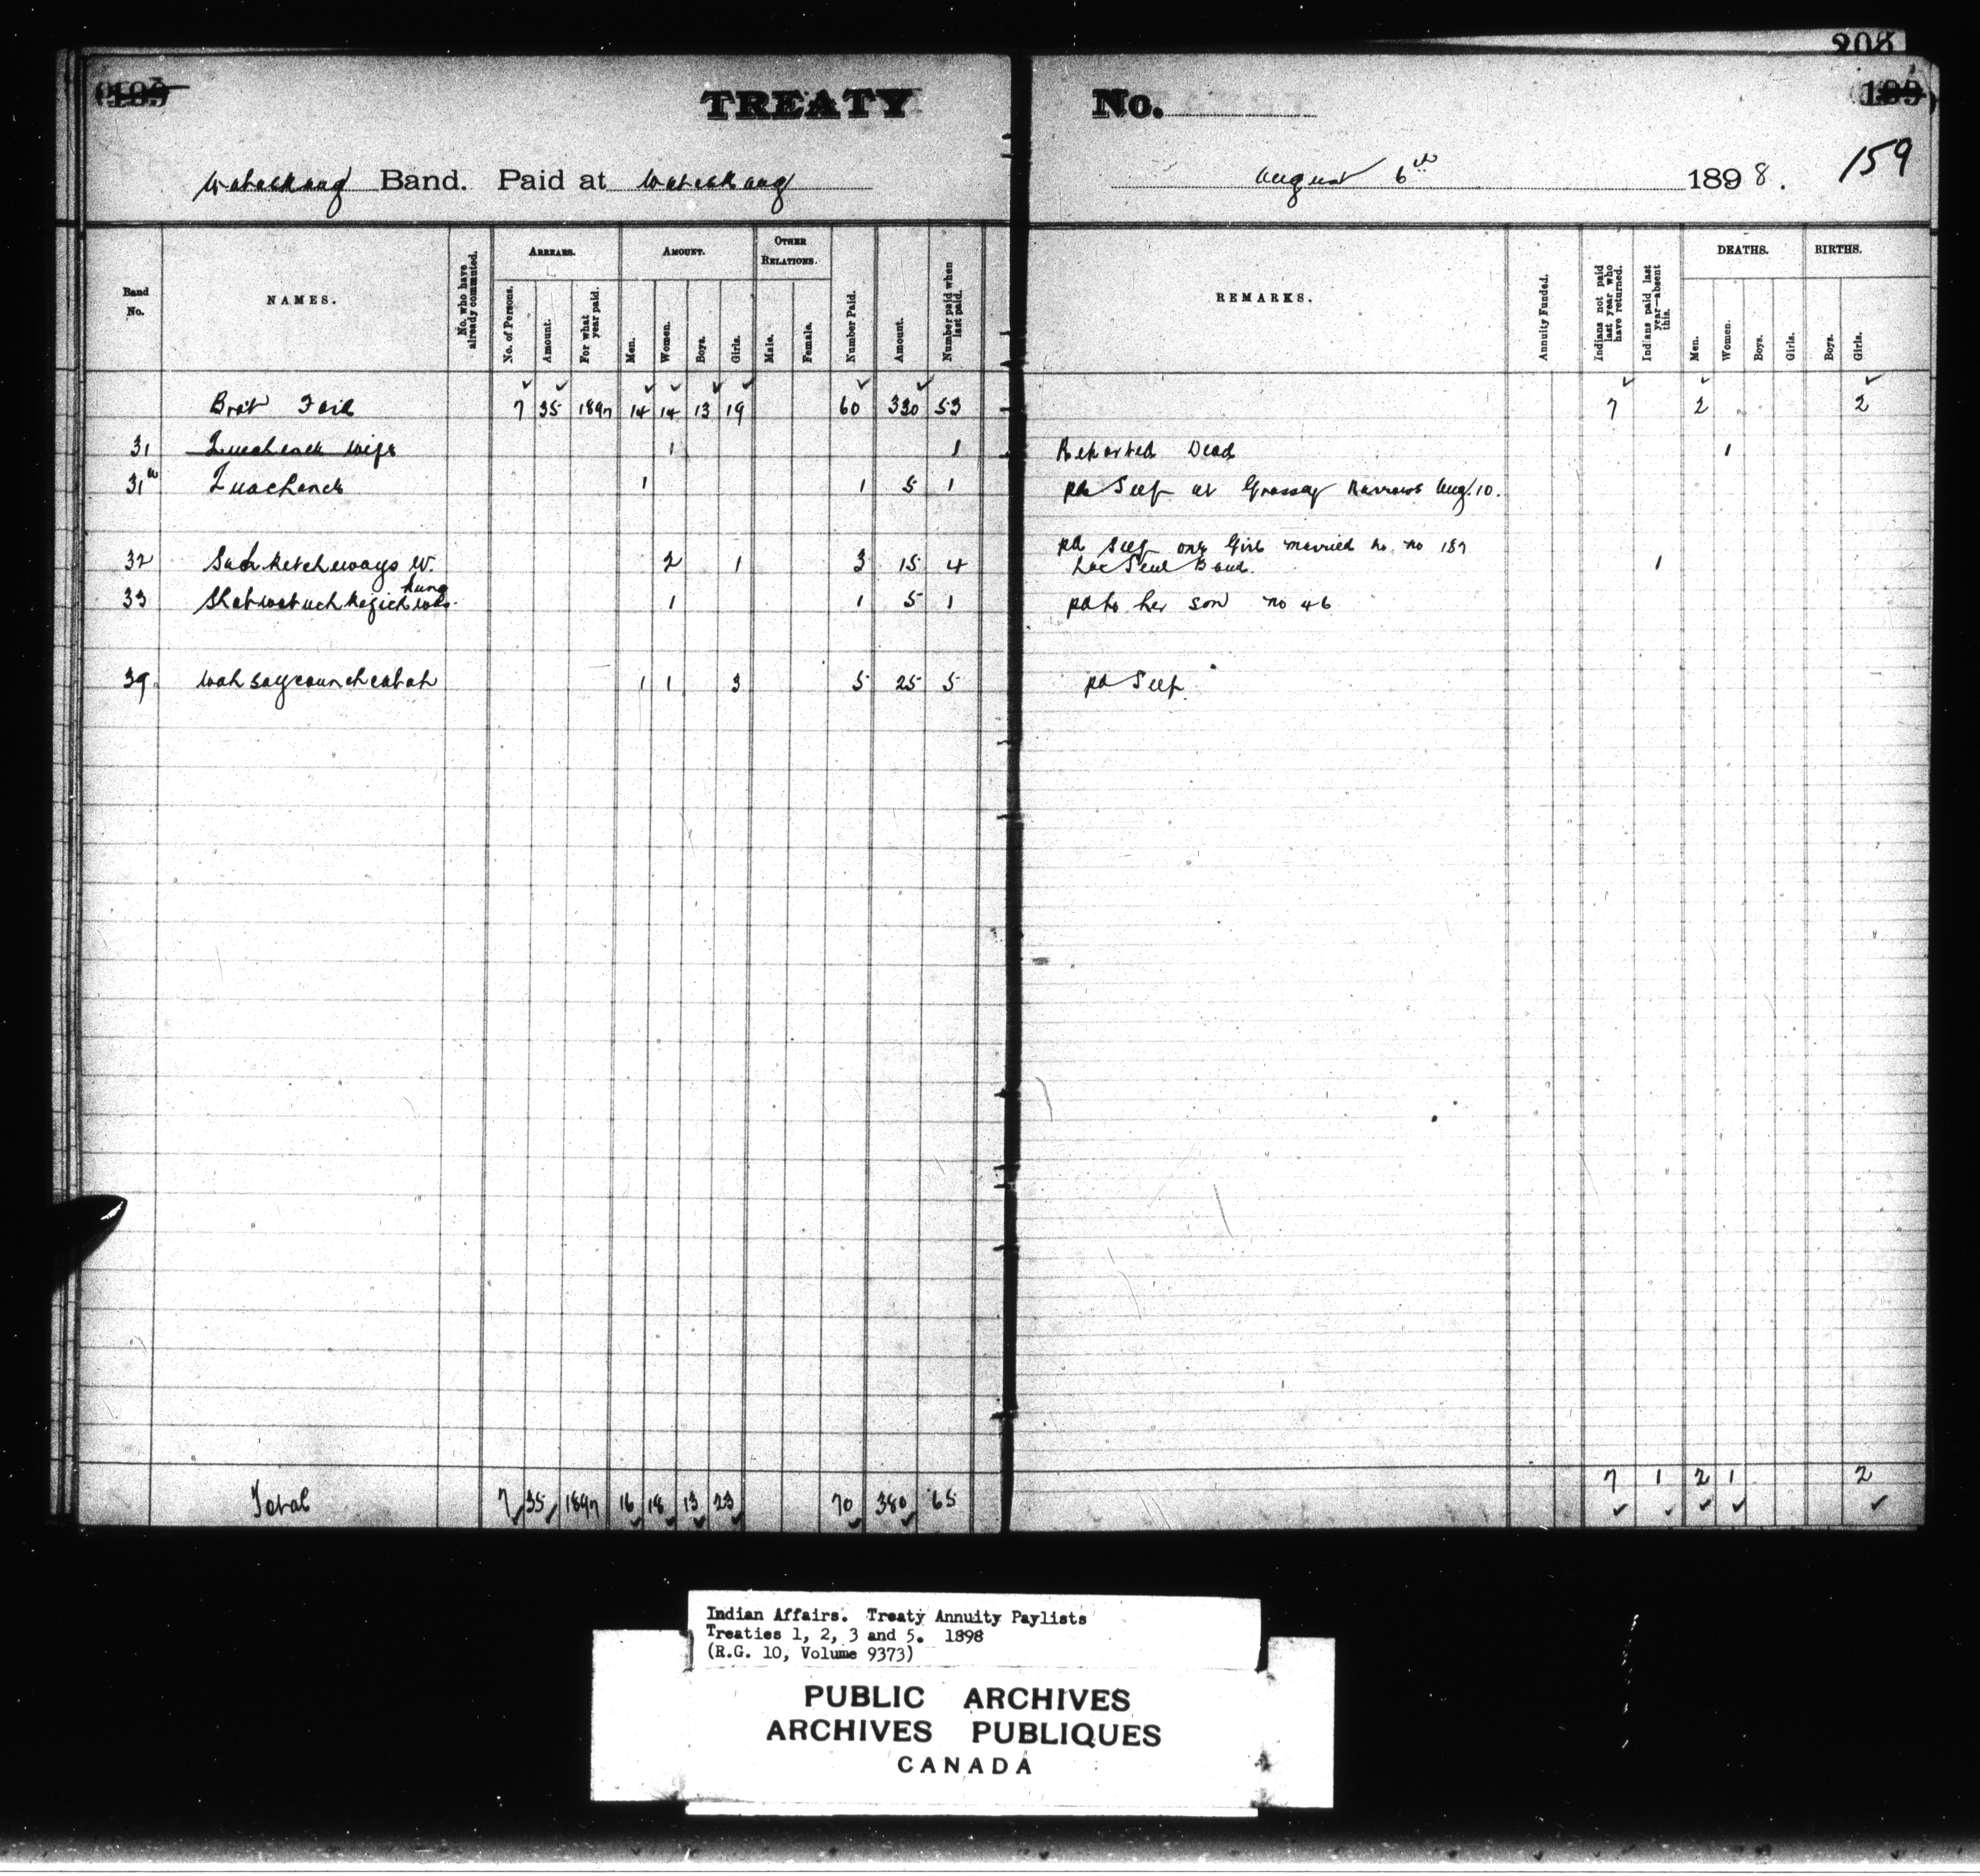 208
TREATY No.
159
Wabaskang Band. Paid at Wabaskang August 6th 1898.
Band No.
NAMES.
No. who have already commuted.
ARREARS.
No. of Persons.
Amount.
For what year paid.
AMOUNT.
Men.
Women.
Boys.
Girls.
OTHER RELATIONS.
Male.
Female.
Number Paid.
Amount.
Number paid when last paid.
REMARKS.
Annuity Funded.
Indians not paid last year who have returned.
Indians paid last year—absent this.
DEATHS.
Men.
Women.
Boys.
Girls.
BIRTHS.
Boys.
Girls.
Brot Ford 7 35 1897 14 14 13 19 60 330 53 7 2 2
31 wife 1 1 Reported Dead 1
31a 1 1 5 1 pd Self at Grassy Narrows Aug. 10.
32 W. 2 1 3 15 4 pd Self one Girl married to no 187
Lac Seul Band. 1
33 1 1 5 1 pd to her son no 46
39 1 1 3 5 25 5 pd Self.
7 1 2 1 2
Total 7 35 1897 16 18 13 23 70 380 65
Indian Affairs. Treaty Annuity Paylists
Treaties 1, 2, 3 and 5. 1898
(R.G. 10, Volume 9373)
PUBLIC ARCHIVES
ARCHIVES PUBLIQUES
CANADA